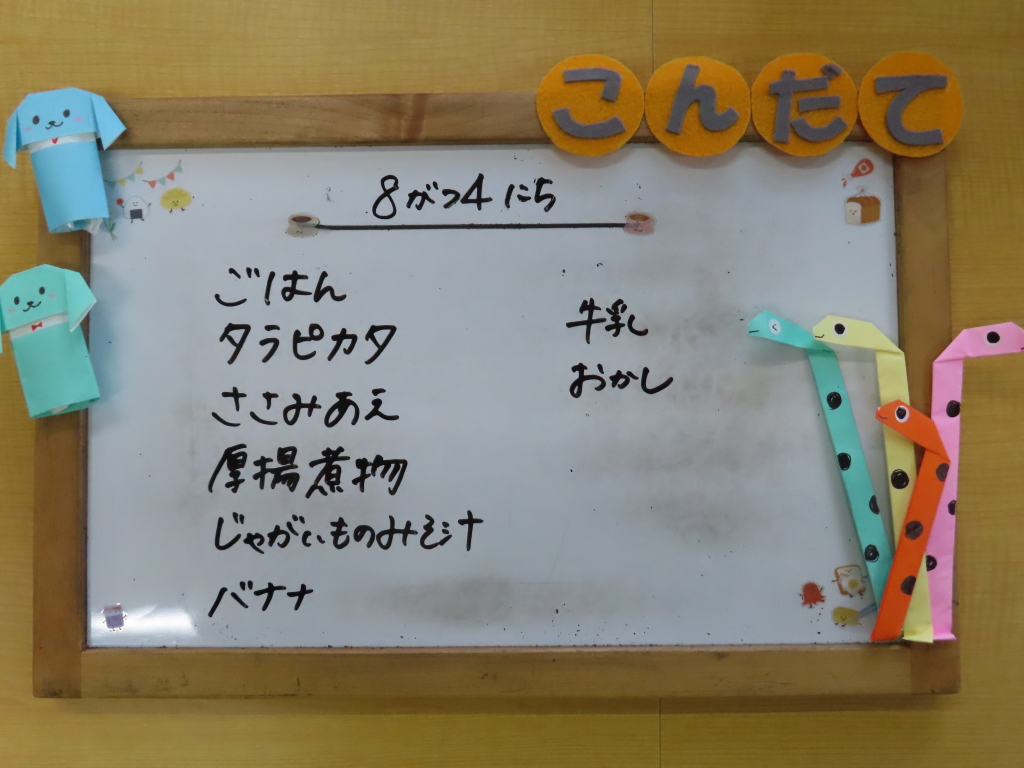 こんだて
8がつ4にち
ごはん
タラピカタ
ささみあえ
厚揚煮物
じゃがいものみそ汁
バナナ
牛乳
おかし